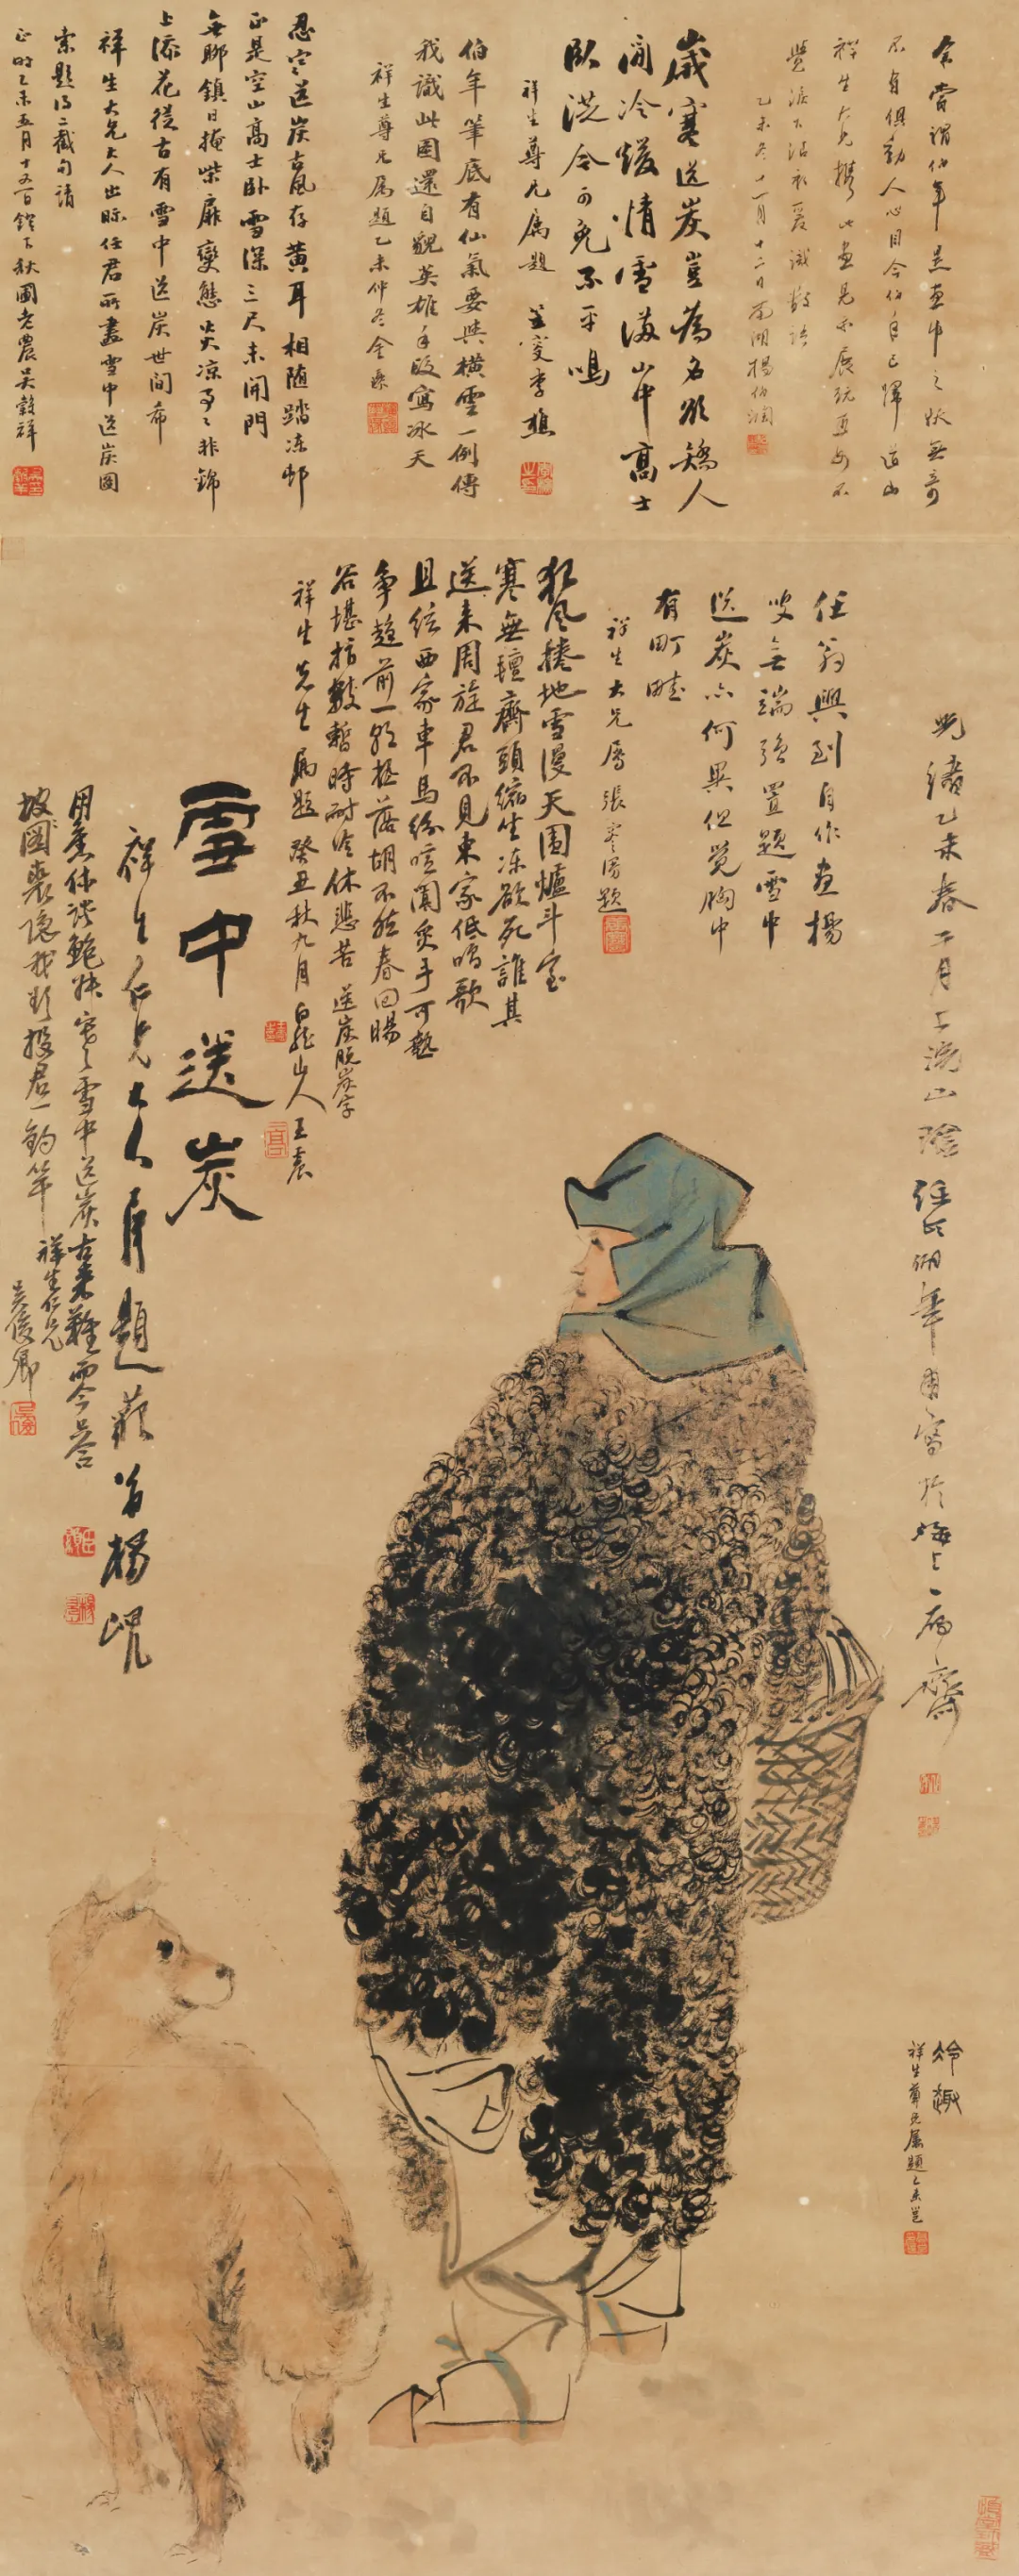 余嘗謂伯年
不自俱勤人心目今伯年已歸道山
祥生大兄攜此畫見示展玩再四不
覺淚下沾衣爰識數語
乙未冬十一月十二日 南湖楊伯潤
歲寒送炭豈為名欲矯人
間冷煖情雪滿山中高士
臥洗令可免不平鳴
祥生尊兄屬題
伯年筆底有仙氣要與橫雲一例傳
我識此圖還自覬英雄手段寫冰天
祥生尊兄屬題乙未仲冬
忍寒送炭古風存黃耳相隨踏凍邨
正是空山高士臥雪深三尺未開門
無聊鎮日掩柴扉變態炎涼事事非錦
上添花從古有雪中送炭世間希
祥生大兄大人出眎任君所畫雪中送炭圖
索題得二截句請
正時乙未五月十五日鐙下秋圃老農吳穀祥
光緒乙未春二月上浣山陰任頤伯年甫寫於海上一角齋
任翁興到自作畫楊
叟無端強置題雪中
送炭亦何異但覺胸中
有町畦
祥生大兄屬 張 題
狂風捲地雪漫天圍爐斗室
寒無氊齊頭縮坐凍欲死誰其
送來周旋君不見東家低唱歌
且絃西家車馬紛喧闐炙手可熱
爭趨前一朝權落胡不然春回暘
谷堪指數暫時耐冷休悲苦 送炭脫炭字
祥生先生屬題 癸丑秋九月白龍山人王震
雪中送炭
祥生仁兄大人屬題藐翁楊峴
寒雪中送炭古來難而今
坡圖裘隱我 投君一釣竿 祥生仁兄
吳俊卿
冷趣
祥生尊兄屬題乙未